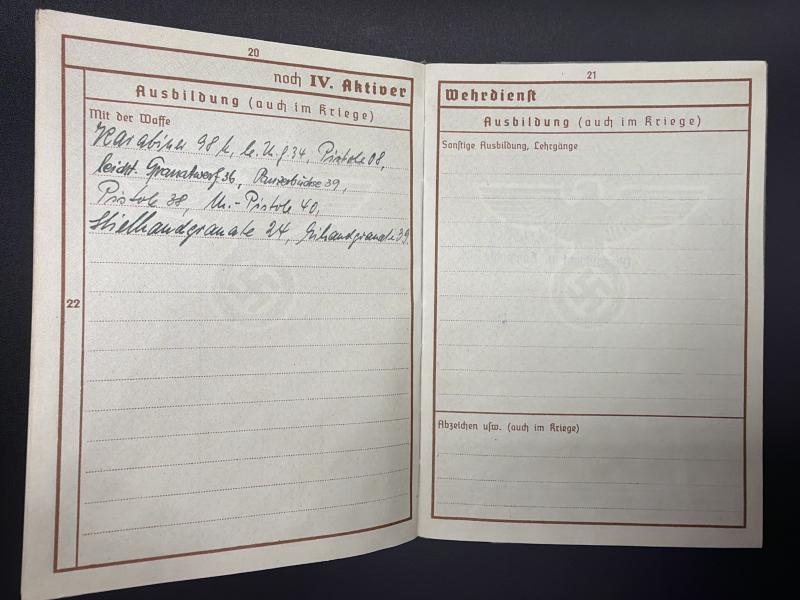 20
noch IV. Aktiver
Ausbildung (auch im Kriege)
Mit der Waffe
Karabiner 98 k, le. M.G 34, Pistole 08,
leicht. Granatwerf 36, Panzerbüchse 39,
Pistole 38, M.-Pistole 40,
Stielhandgranate 24, Eihandgranate 39.
22
21
Wehrdienst
Ausbildung (auch im Kriege)
Sonstige Ausbildung, Lehrgänge
Abzeichen usw. (auch im Kriege)